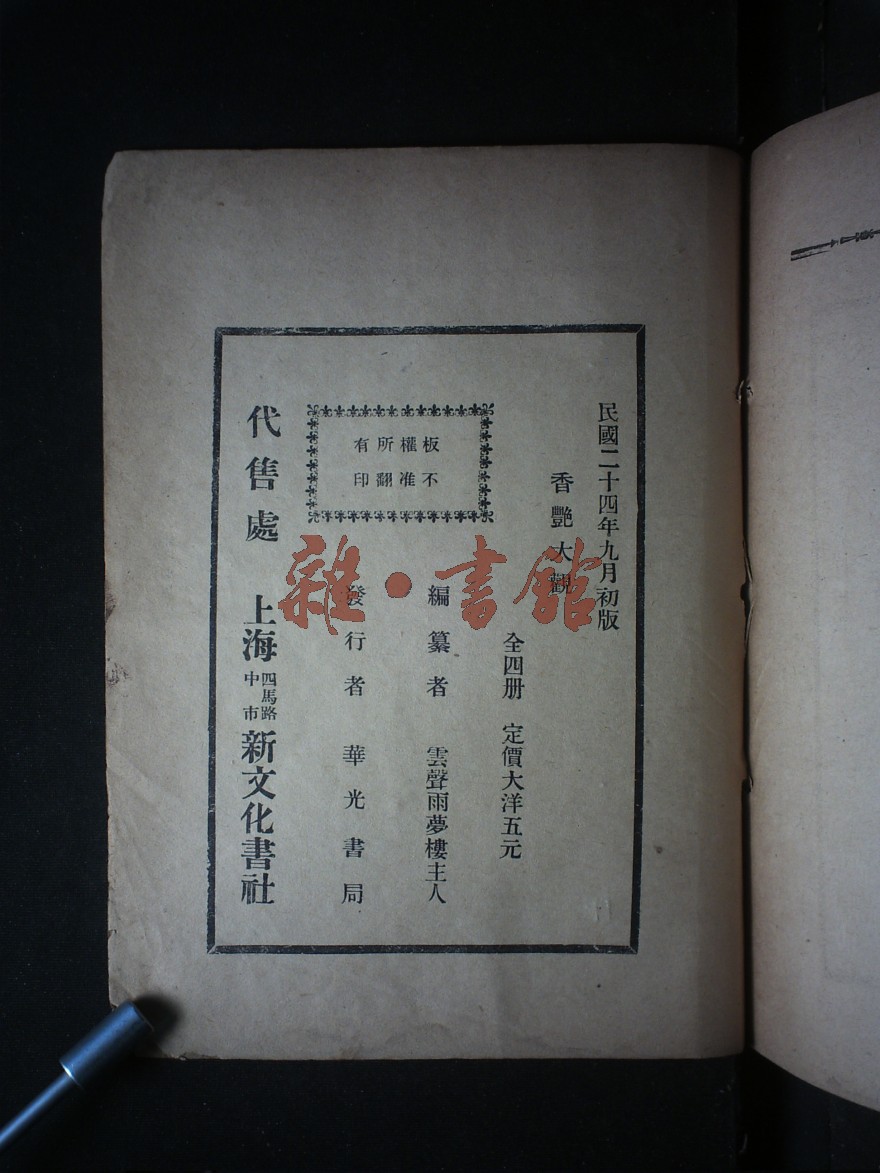 民國二十四年九月初版
香艷大觀
全四册 定價大洋五元
編纂者 雲聲雨夢樓主人
發行者 華光書局
板權所有
不准翻印
代售處 上海四馬路中市新文化書社
雜·書館